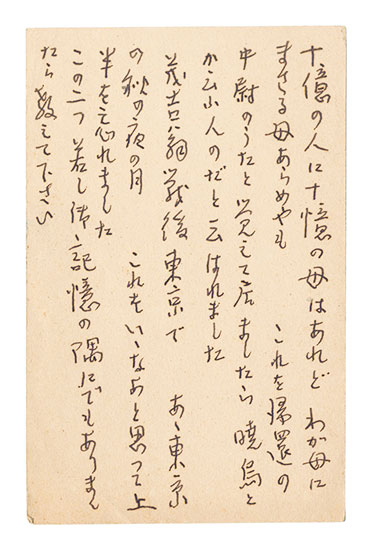 十億の人に十憶の母はあれど わが母に
まさる母あらめやも これを帰還の
中尉のうたと覚えて居ましたら 暁烏と
か云ふ人のだと云はれました
茂吉翁 戦後東京で あゝ東京
の秋の夜の月 これをいゝなあと思って上
半を忘れました
この二つ 若し 記憶の隅にでもありまし
たら教えて下さい